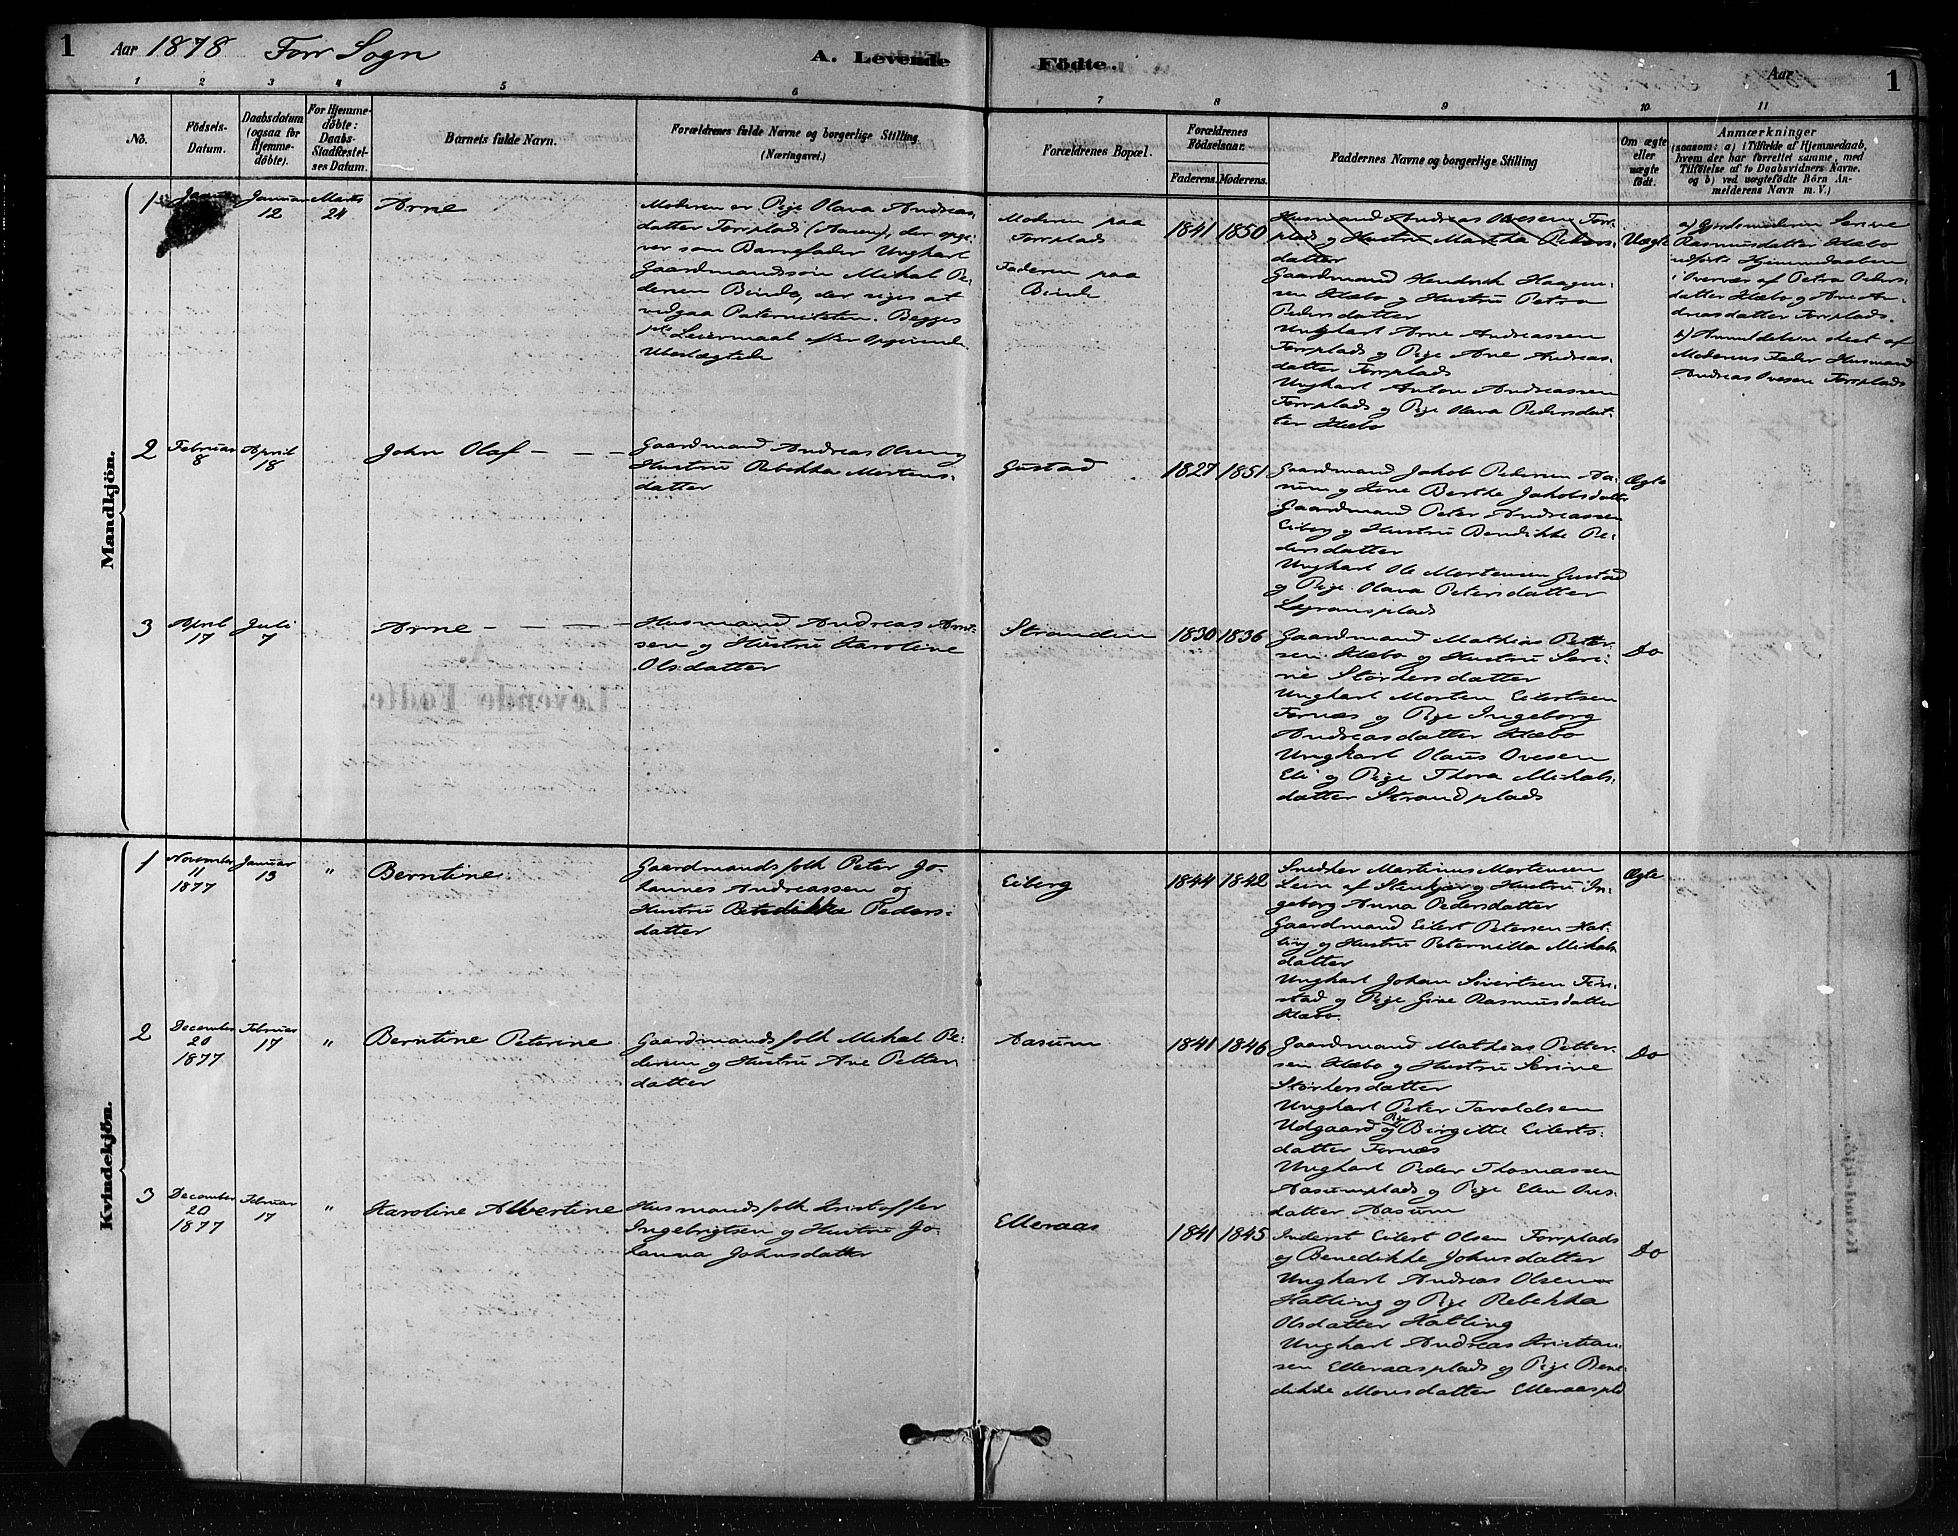 1 Aar 1878 Forr Sogn A. Levende Födte. Aar 1
1 2 3 4 5 6 7 8 9 10 11
No.
Födsels-
Datum.
Daabsdatum
(ogsaa for
Hjemme-
döbte).
For Hjemme-
döbte:
Daabs-
Stadfæstel-
ses Datum.
Barnets fulde Navn.
Forældrenes fulde Navne og borgerlige Stilling
(Næringsvei.)
Forældrenes Bopæl.
Forældrenes
Födselsaar.
Faderens. Moderens.
Faddernes Navne og borgerlige Stilling
Om ægte
eller
uægte
födt.
Anmærkninger
(saasom: a) i Tilfælde af Hjemmedaab,
hvem der har forrettet samme, med
Tilföielse af to Daabsvidners Navne,
og b) ved uægtefödte Börn An-
melderens Navn m. V.)
Mandkjön.
1
Januar
12
Marts
24
Arne
Moderen er Pige Olava Andreas-
datter Forrplads (Aasen), der opgi-
ver som Barnefader Ungkarl
Gaardmandssön Mikal Pe-
dersen Beinde, der siges at
vedgaa Paterniteten. Begges
Leiermaal efter Opgivende
Moderen paa
Forrplads
Faderen paa
Beinde
1841 1850
Husmand Andreas Ovesen Forr-
plads og Hustru Martha Peders-
datter
Gaardmand Hendrik Haagen-
sen Hæbo og Hustru Petra
Pedersdatter
Ungkarl Arne Andreassen
Forrplads og Pige Ane Andreas-
datter Forrplads
Ungkarl Anton Andreassen
Forrplads og Pige Olava Pedersdat-
ter Hæbo
Uægte
a) Gjordemoderen Serine
Rasmusdatter Hæbo
udförte Hjemmedaaben
i Overvær af Petra Peders-
datter Hæbo og Ane An-
dreasdatter Forrplads.
b) Anmeldelsen skeet af
Moderens Fader Husmand
Andreas Ovesen Forrplads
2
Februar
8
April
18
John Olaf - - -
Gaardmand Andreas Olsen og
Hustru Rebekka Mortens-
datter
Gustad
1827 1851
Gaardmand Jakob Pedersen Aa-
sum og Kone Berthe Jakobsdatter
Gaardmand Peter Andreassen
Eiberg og Hustru Bendikke Pe-
dersdatter
Ungkarl Ole Mortensen Gustad
og Pige Olava Petersdatter
Ægte
3
April
17
Juli
7
Arne - - - -
Husmand Andreas Arnt-
sen og Hustru Karoline
Olsdatter
Stranden
1830 1836
Gaardmand Mathias Petter-
sen Hæbo og Hustru Seri-
ne Störkersdatter
Ungkarl Morten Eilertsen
Fornæs og Pige Ingeborg
Andreasdatter Hæbo
Ungkarl Olaus Ovesen
Eli og Pige Thora Mikals-
datter Strandplads
Do
Kvindekjön.
1
November
11
1877
Januar
13
"
Berntine.
Gaardmandsfolk Peter Jo-
hannes Andreassen og
Hustru Benedikka Peders-
datter
Eiberg
1844 1842
Snedker Martinus Mortensen
Lein af Stenkjær og Hustru In-
geborg Anna Pedersdatter
Gaardmand Eilert Petersen Hat-
ling og Hustru Peternilla Mikals-
datter
Ungkarl Johan Sivertsen Finn-
stad og Pige Gine Rasmusdatter
Hæbo.
Ægte
2
December
20
1877
Februar
17
"
Berntine Peterine
Gaardmandsfolk Mikal Pe-
dersen og Hustru Ane Petter-
datter
Aasum
1841 1846
Gaardmand Mathias Petter-
sen Hæbo og Hustru Serine
Störkersdatter
Ungkarl Peter Taroldsen
Udgaard og Pige Birgitte Eilerts-
datter Fornæs
Ungkarl Peder Thomassen
Aasumplads og Pige Elen Oves-
datter Aasum
Do
3
December
20
1877
Februar
17
"
Karoline Albertine
Husmandsfolk Kristoffer
Ingebrigtsen og Hustru Jo-
hanna Johnsdatter
Elleraas
1841 1845
Inderst Eilert Olsen Forrplads
og Benedikke Johnsdatter
Ungkarl Andreas Olsen
Hatling og Pige Rebekka
Olsdatter Hatling
Ungkarl Andreas Kristian-
sen Elleraasplads og Pige Bene-
dikte Monsdatter Elleraaspld
Do